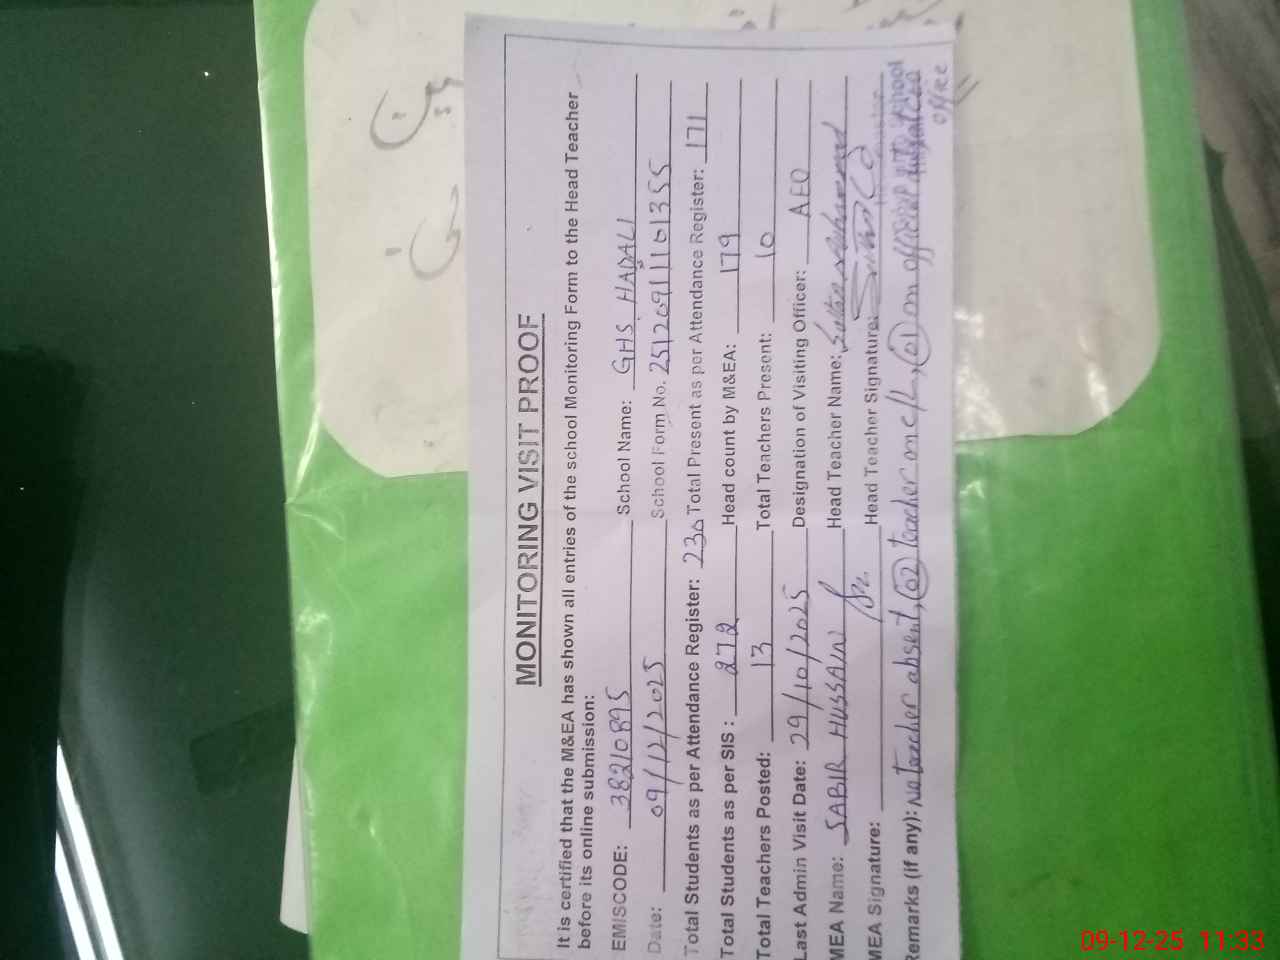 MONITORING VISIT PROOF
It is certified that the M&EA has shown all entries of the school Monitoring Form to the Head Teacher
before its online submission:
EMISCODE: 38210895 School Name: GHS HADALI
Date: 09/12/2025 School Form No. 251209111101355
Total Students as per Attendance Register: 230 Total Present as per Attendance Register: 171
Total Students as per SIS: 272 Head count by M&EA: 179
Total Teachers Posted: 13 Total Teachers Present: 10
Last Admin Visit Date: 29/10/2025 Designation of Visiting Officer: AEO
MEA Name: SABIR HUSSAIN Head Teacher Name: Sultan
MEA Signature: Head Teacher Signature:
Remarks (if any): No teacher absent, (02) teacher on c/L, (01) on official
office
09-12-25 11:33